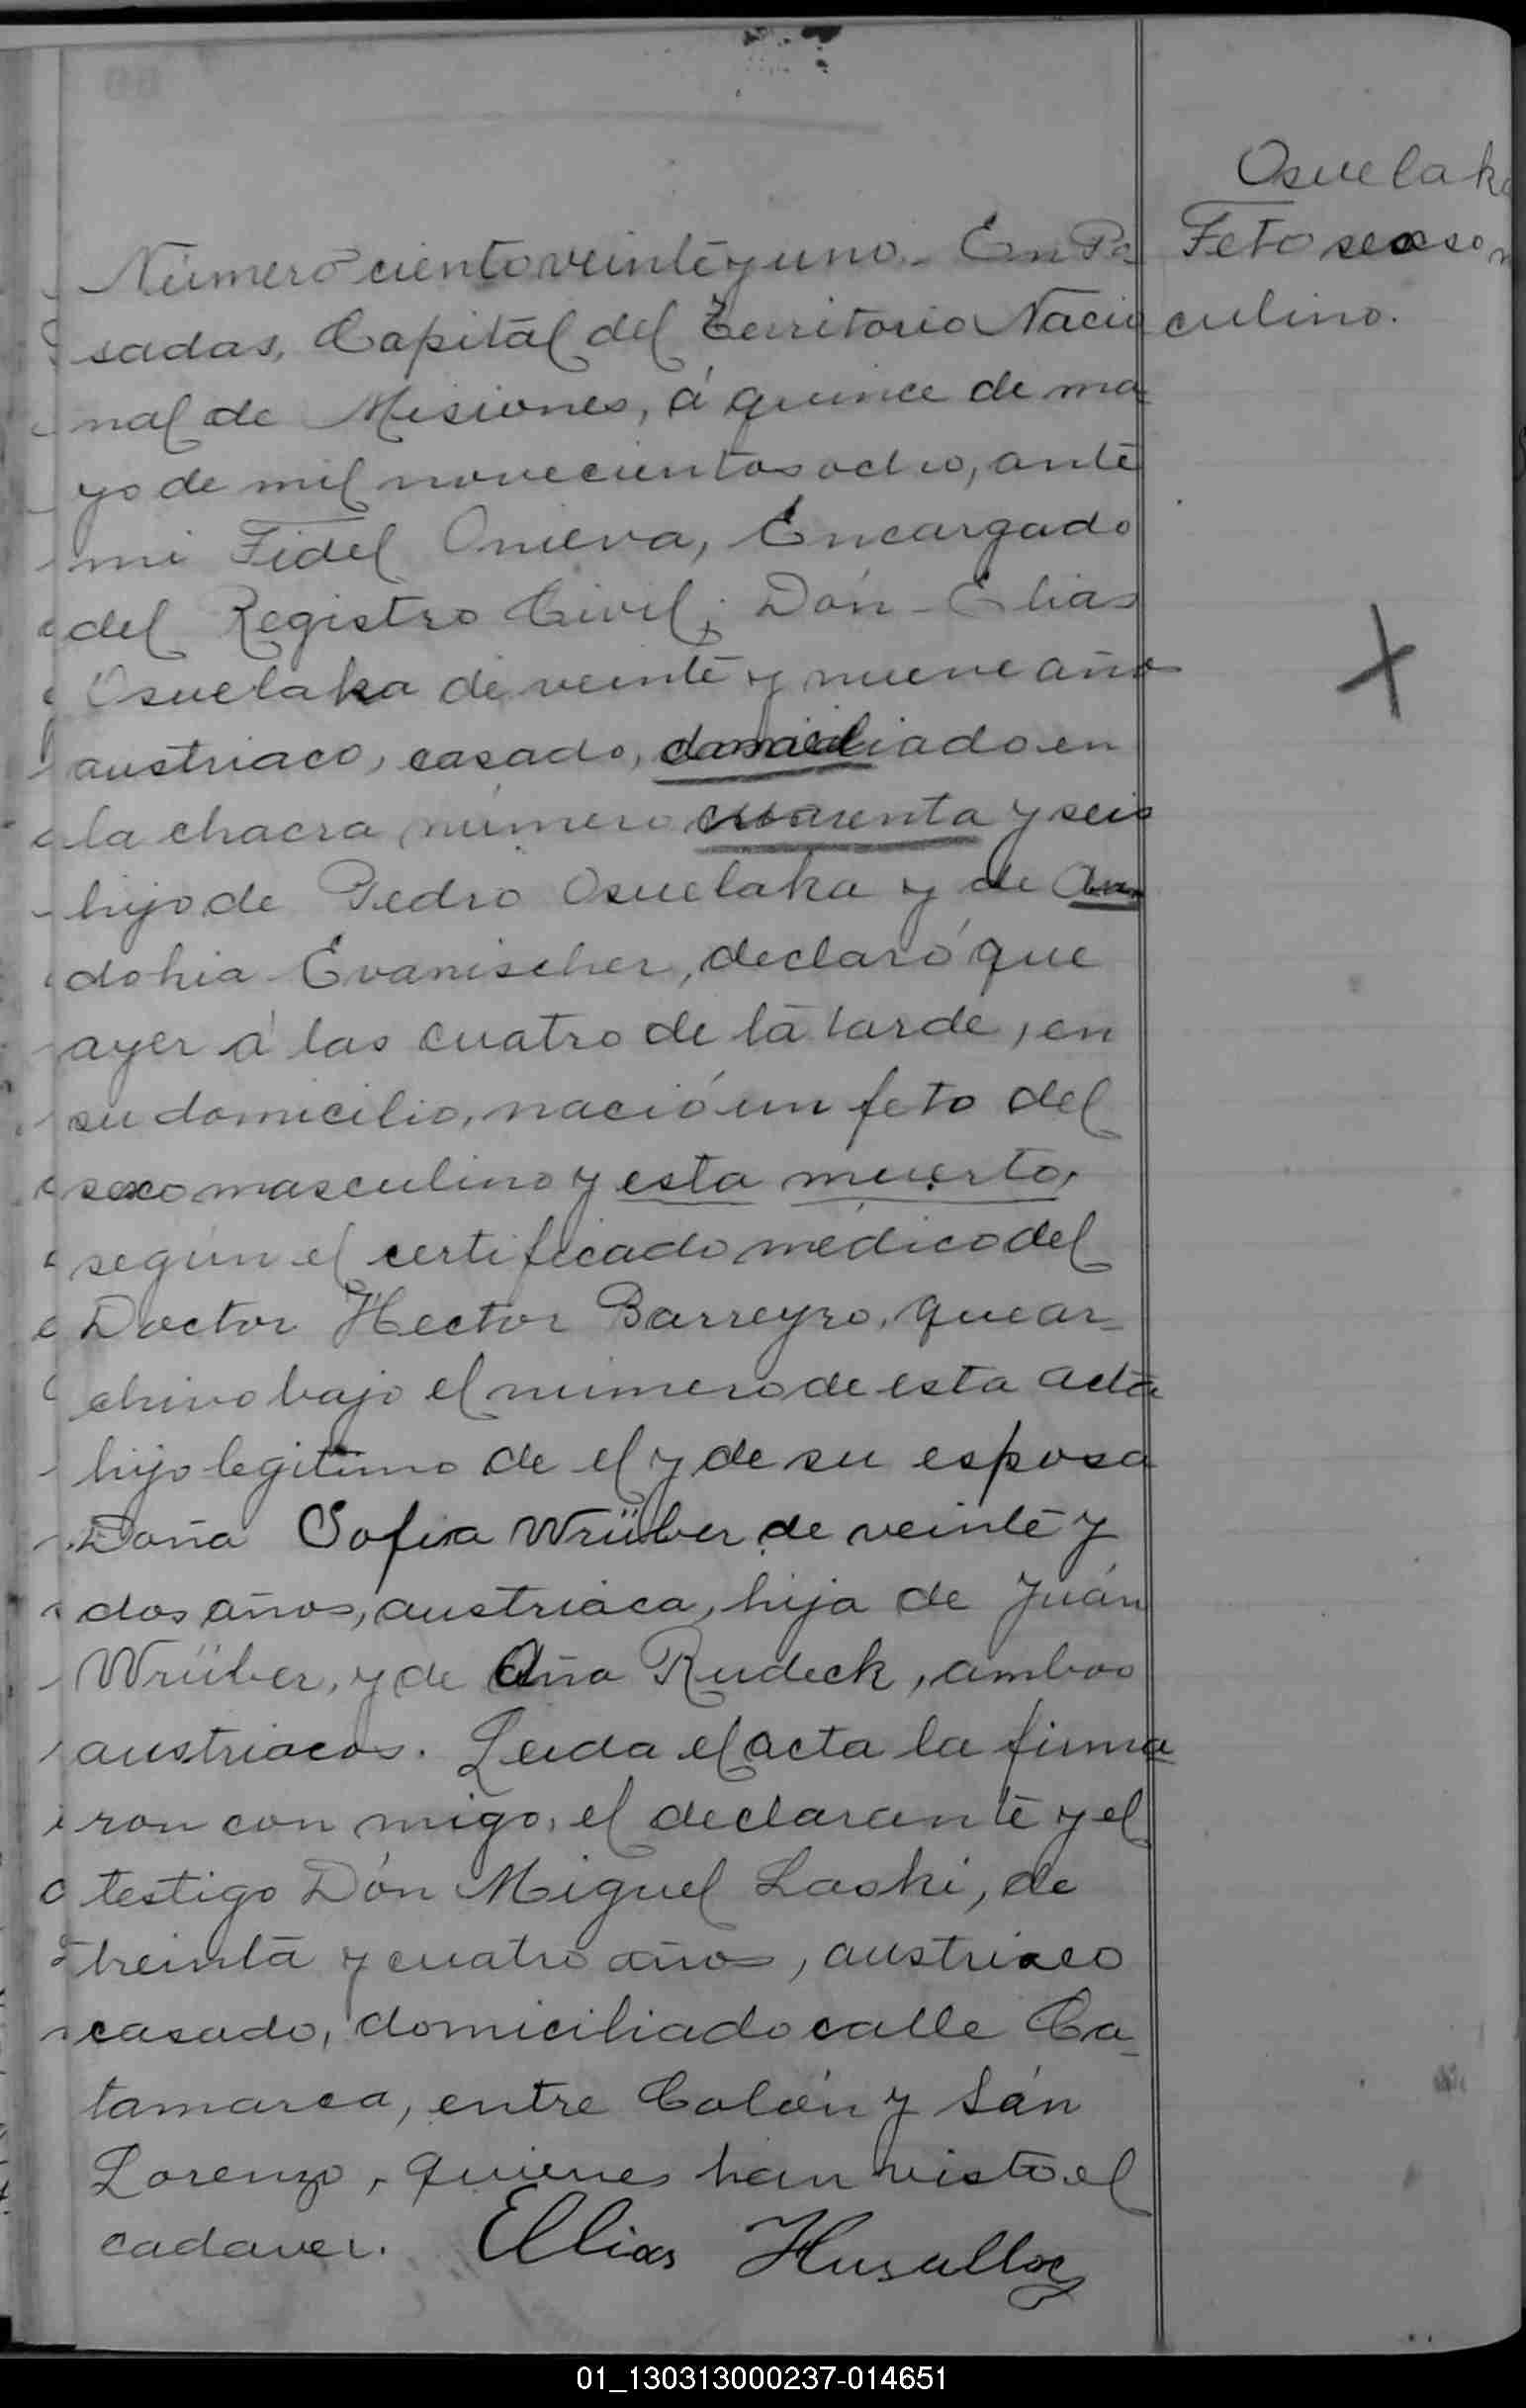 Osuelaka
Feto sexo m
culino.
Número ciento veinte y uno.- En Po-
sadas, Capital del Territorio Nacio
nal de Misiones, á quince de ma-
yo de mil novecientos ocho, ante
mi Fidel Onieva, Encargado
del Registro Civil; Dón Elias
Osuelaka de veinte y nueve años
austriaco, casado, domiciliado en
la chacra número cuarenta y seis
hijo de Pedro Osuelaka y de
dohia Evanischer, declaró que
ayer á las cuatro de la tarde, en
su domicilio, nació un feto del
sexo masculino y esta muerto,
según el certificado médico del
Doctor Hector Barreyro, que ar-
chivo bajo el número de esta acta
hijo legitimo de el y de su esposa
Doña Sofia Wrüber de veinte y
dos años, austriaca, hija de Juán
Wrüber, y de Aña Rudeck, ambos
austriacos. Leida el acta la firma
ron con migo, el declarante y el
testigo Dón Miguel Laski, de
treinta y cuatro años, austriaco
casado, domiciliado calle Ca-
tamarca, entre Colón y Sán
Lorenzo, quienes han visto el
cadaver. Ellias
01_130313000237-014651